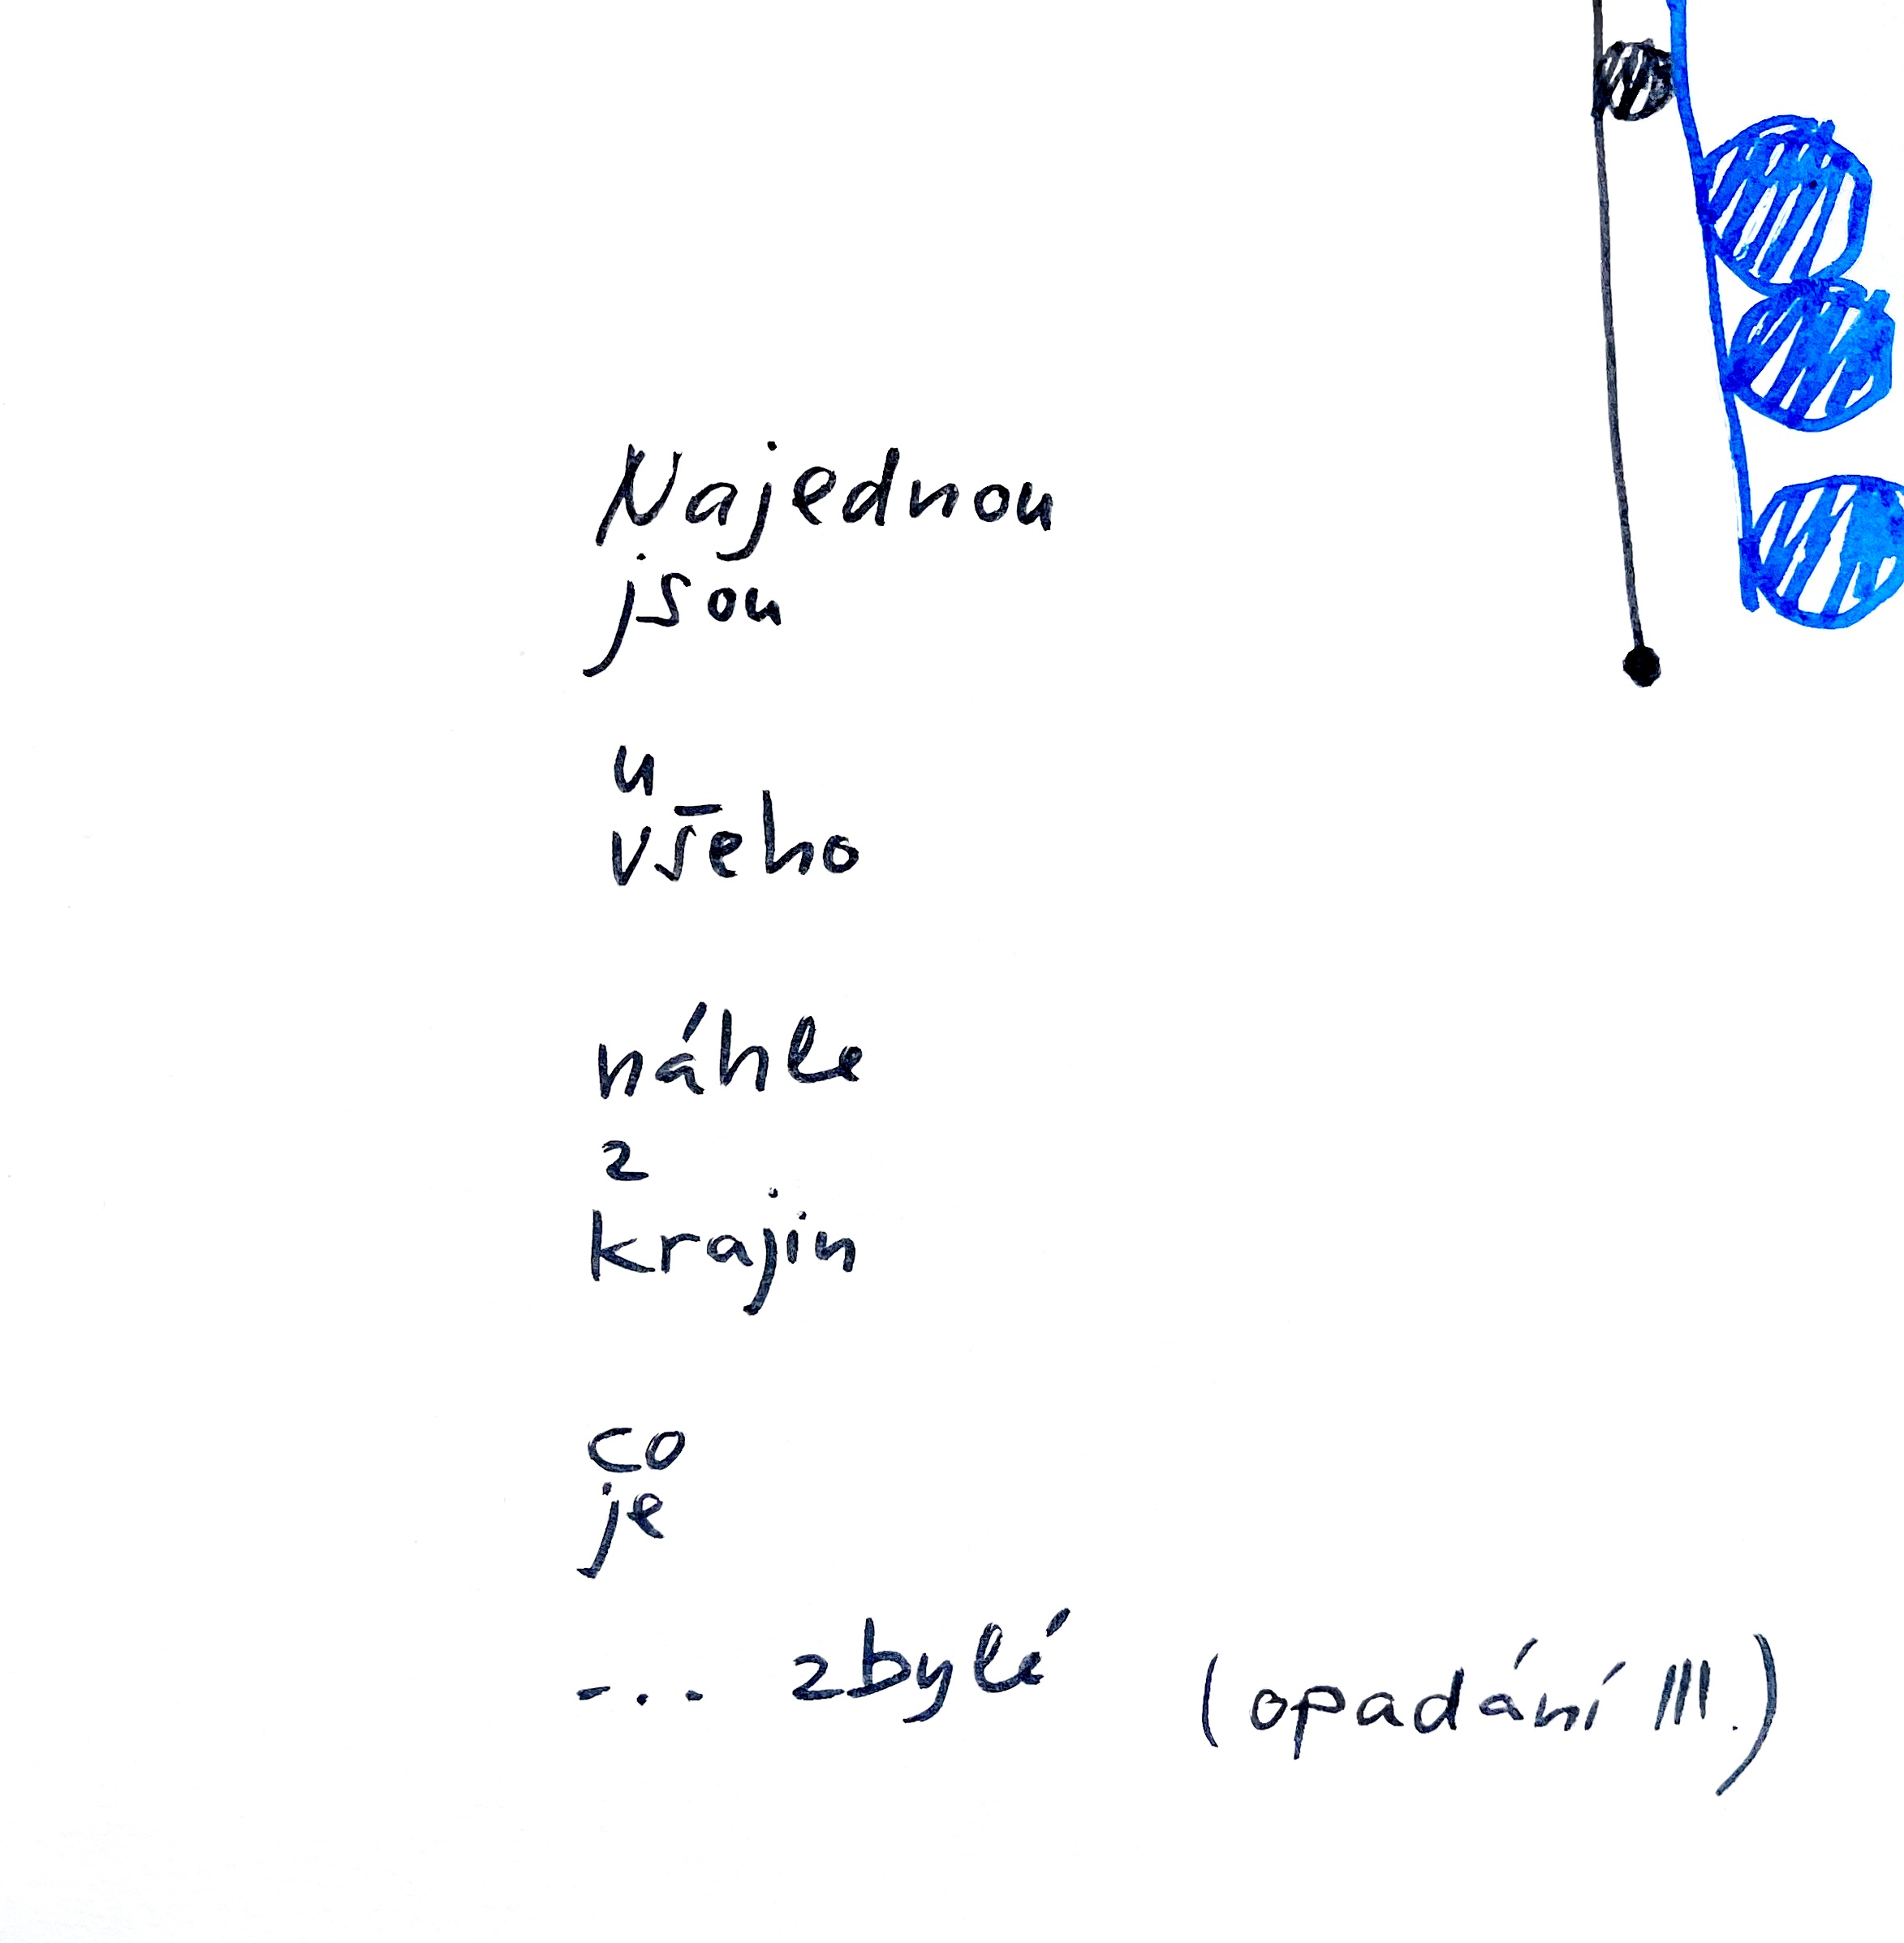 Najednou
jsou
u
všeho
náhle
z
krajin
co
je
... zbylé (opadání III.)